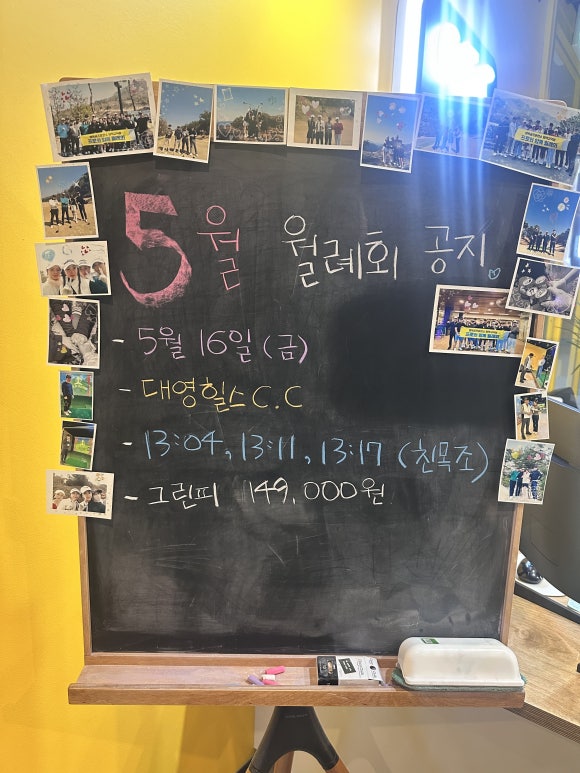 5월 월례회 공지
- 5월 16일 (금)
- 대영힐스 C.C
- 13:04, 13:11, 13:17 (친목조)
- 그린피 149,000원